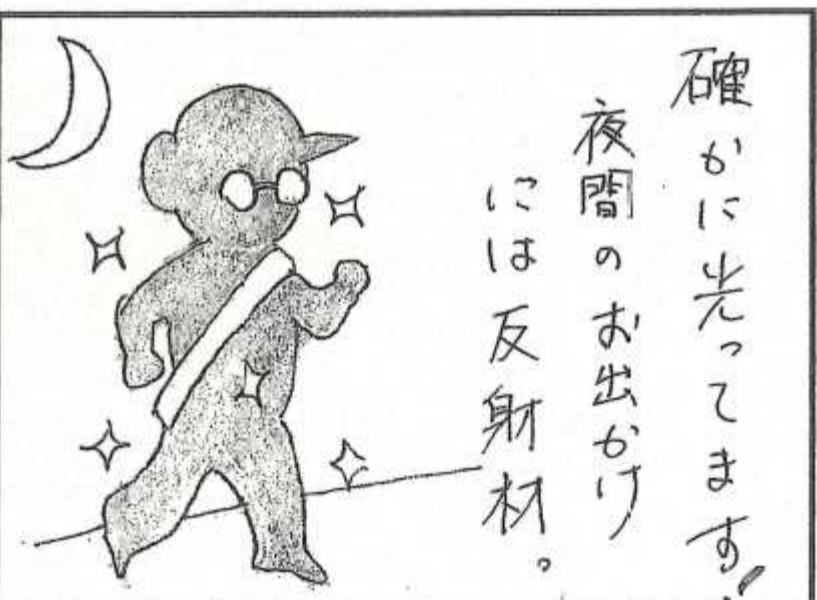 確かに光ってます!
夜間のお出かけ
には反射材。